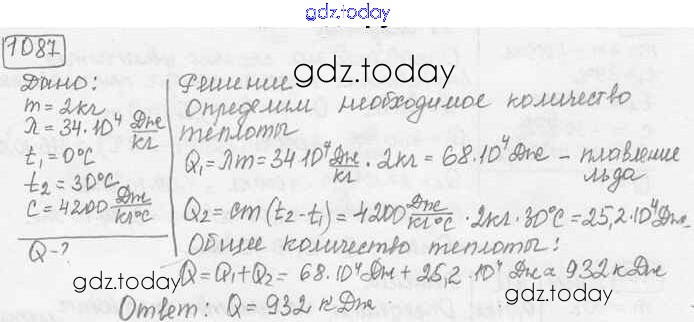 gdz.today
1087
Дано:
m = 2кг
λ = 34·10⁴ Дж/кг
t₁ = 0°C
t₂ = 30°C
C = 4200 Дж/кг°C
Q - ?
Решение
gdz.today
Определим необходимое количество
теплоты
Q₁ = λm = 34·10⁴ Дж/кг · 2кг = 68·10⁴ Дж – плавление
льда
Q₂ = cm(t₂ - t₁) = 4200 Дж/кг°C · 2кг · 30°C = 25,2·10⁴ Дж.
Общее количество теплоты:
gdz.today
Q = Q₁ + Q₂ = 68·10⁴ Дж + 25,2·10⁴ Дж = 932 кДж
gdz.today
Ответ: Q = 932 кДж.